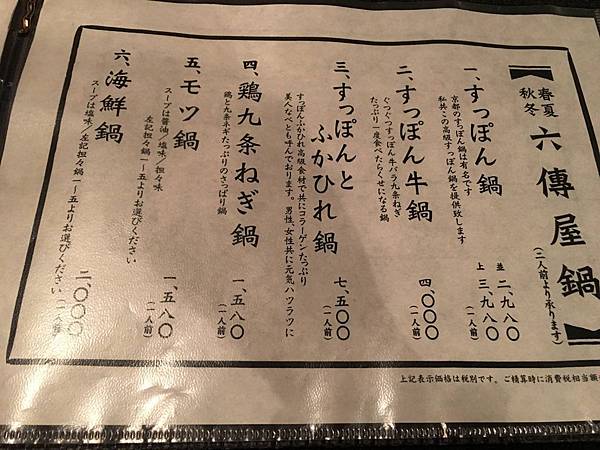 春夏
秋冬
六傳屋鍋
(二人前より承ります)
一、すっぽん鍋
京都のすっぽん鍋は有名です
私共この高級すっぽん鍋を提供致します
並 二、九八〇
上 三、九八〇
(一人前)
二、すっぽん牛鍋
ぐつぐつすっぽん牛バラ九条ねぎ
たっぷり一度食べたらくせになる鍋
四、〇〇〇
(一人前)
三、すっぽんと
ふかひれ鍋
すっぽんふかひれ高級食材で共にコラーゲンたっぷり
美人なべとも呼んでおります。男性、女性共に元気ハツラツに
七、五〇〇
(一人前)
四、鶏九条ねぎ鍋
鶏と九条ネギたっぷりのさっぱり鍋
一、五八〇
(一人前)
五、モツ鍋
スープは醤油/塩味/担々味
左記担々鍋一〜五よりお選びください
一、五八〇
(一人前)
六、海鮮鍋
スープは塩味/左記担々鍋一〜五よりお選びください
二、〇〇〇
(一人前)
上記表示価格は税別です。ご精算時に消費税相当額